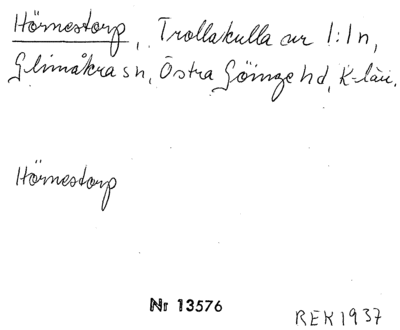 Hörnestorp, Trollakulla ur 1:1n,
Glimåkra sn, Östra Göinge hd, K-län.
Hörnestorp
Nr 13576
REK 1937